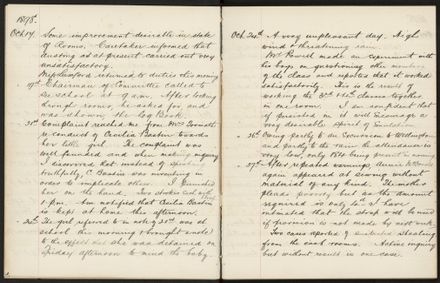 1898.
Oct. 14. Some improvement desirable in state
of Rooms. Caretaker informed that
dusting as at present carried out very
unsatisfactory.
returned to duties this morning
17th Chairman of Committee called
the school at 9 a.m. After looking
through rooms, he asked for and
was shown the Log Book.
21st Complaint received from Mrs
re conduct of Cecilia Bastin towards
her little girl. The complaint was
well founded and when making inquiry
I discovered that instead of speaking
truthfully, C. Bastin was inventing in
order to implicate others. I punished
her on the hand. Two strokes
1 p.m. Am notified that Cecilia Bastin
is kept at home this afternoon.
24th The girl referred to in note of 21st was at
school this morning & brought a note
to the effect that she was detained on
Friday afternoon to mind the baby.
Oct. 24th A very unpleasant day. High
wind & threatening rain.
Mr. Powell made an experiment with
his boys in questioning other members
of the class and reports that it worked
satisfactorily. This is the result of
working the 3rd classes together
in one room. I am confident that
if persisted in it will encourage a
very desirable spirit of
26th Owing partly to an Excursion to Wellington
and partly to the rain the attendance is
very low, only being present in morning
27th After repeated warnings,
again appeared at sewing without
material of any kind. The mother
pleads poverty, but as the amount
required is only I have
intimated that the strap will be used
if provision is not made by next week.
Two cases reported of suspected stealing
from the coat rooms. Active inquiry
but without result in one case.